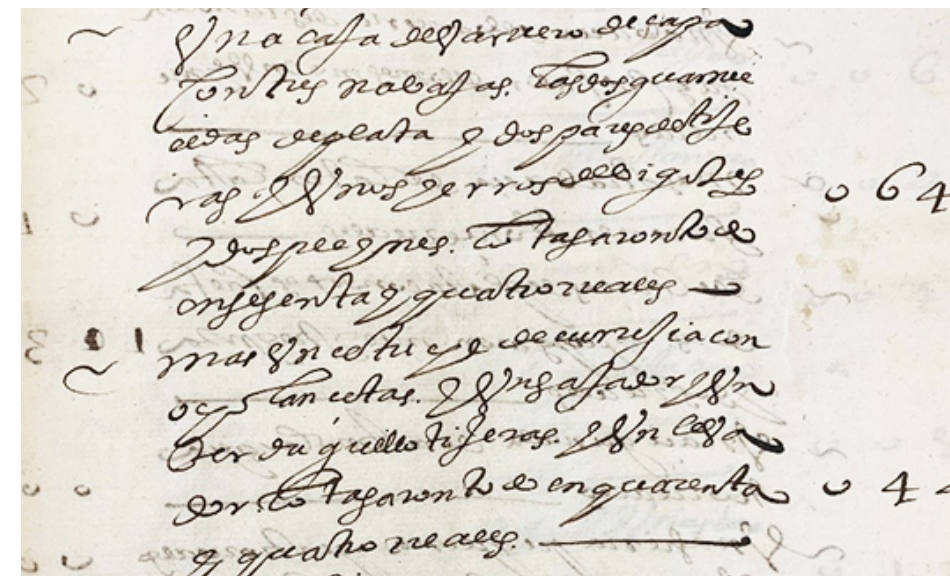 Una caja de varvero de çapa
con tres nabajas. las dos guarne
cidas de plata y dos pares de tije
ras y Unos yerros de bigotes 064
y dos peeynes. lo tasaron todo
en sesenta y quatro reales
mas Un estuche de curujia con
ocho lancetas. y Un sajador y Un
verduguillo tijeras. y Un leva
dor lo tasaron todo en quarenta 044
y quatro reales.